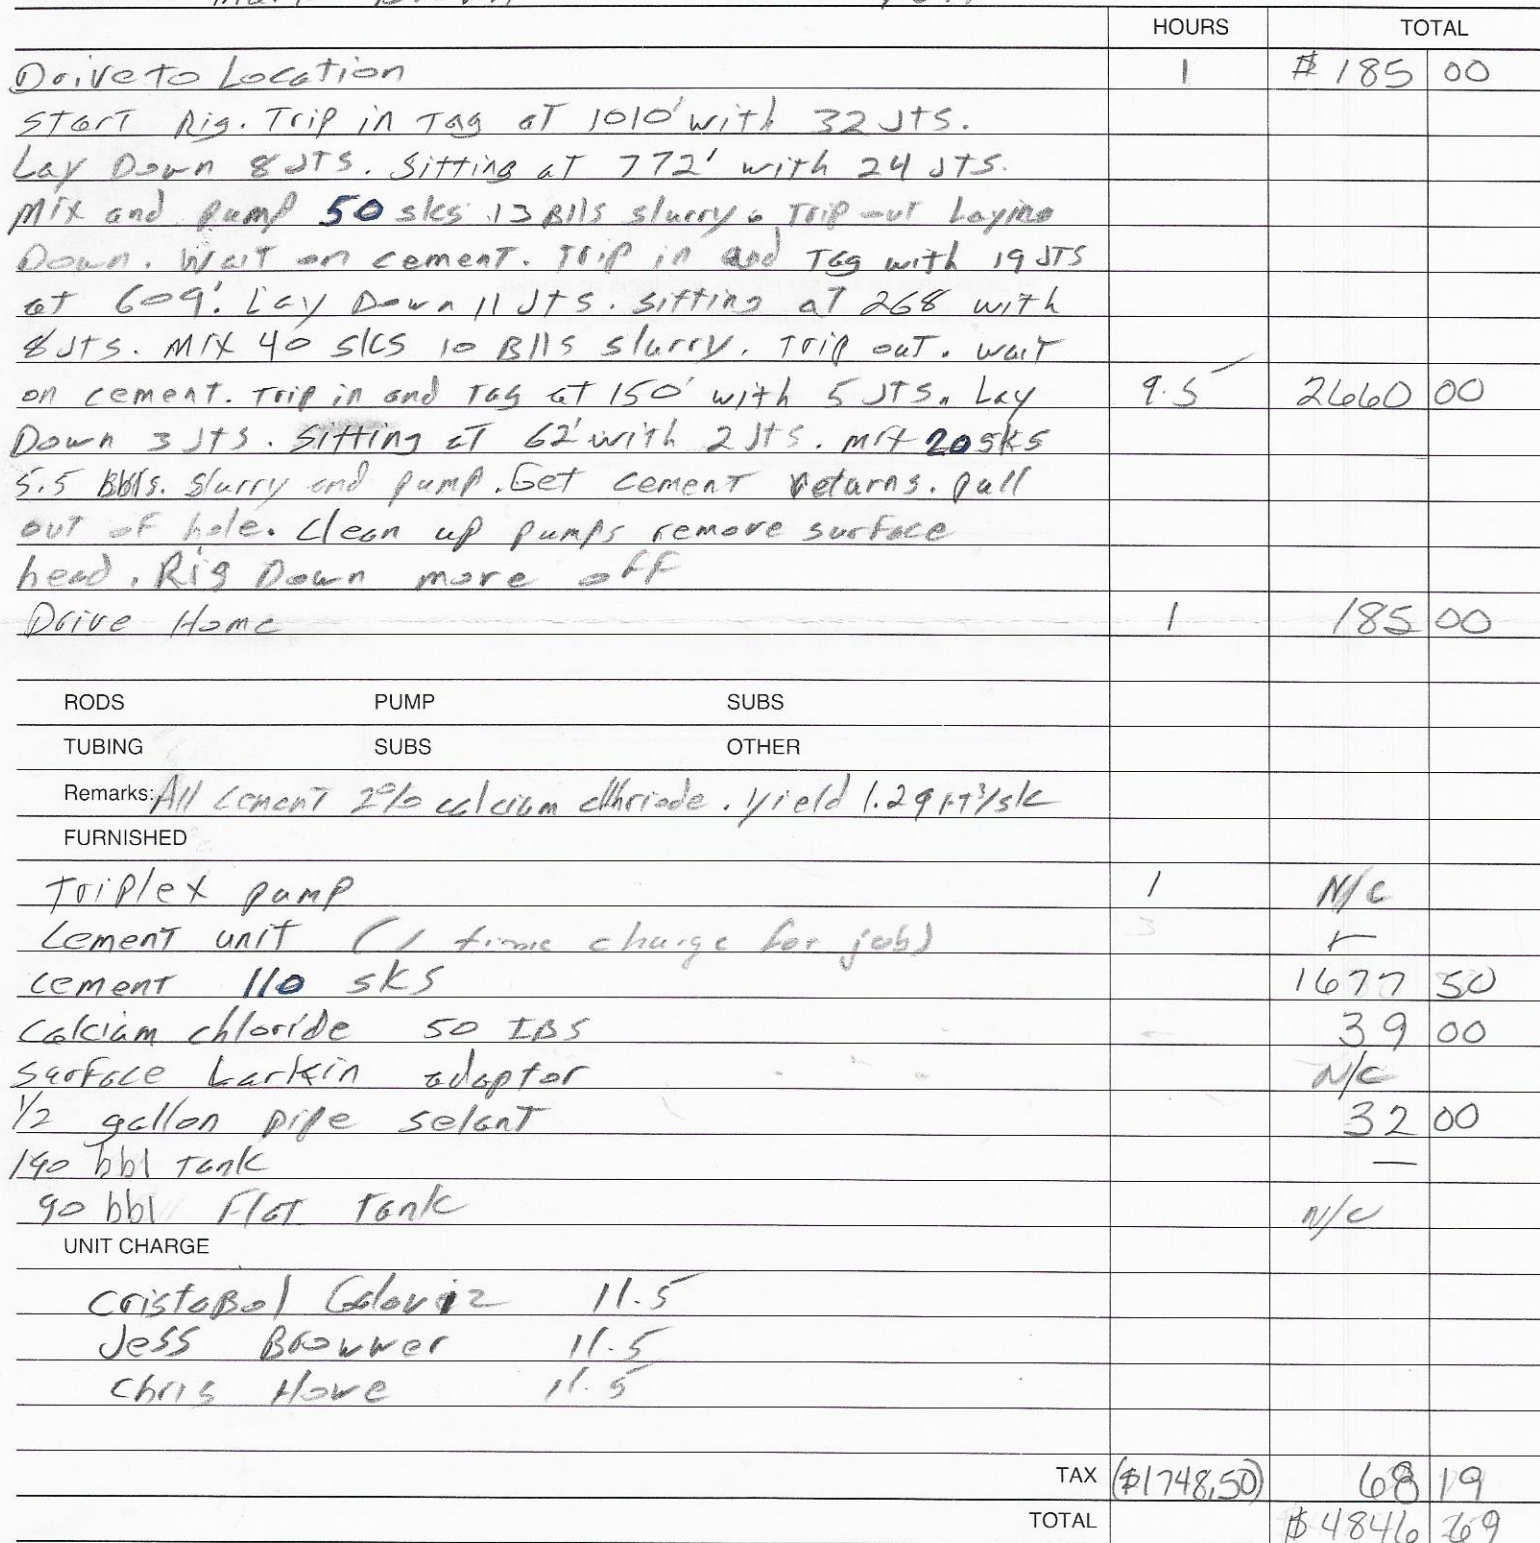 HOURS TOTAL
Drive to Location 1 $ 185 00
Start Rig. Trip in Tag at 1010' with 32 JTS.
Lay Down 8 JTS. Sitting at 772' with 24 JTS.
Mix and pump 50 sks 13 Blls slurry. Trip out Laying
Down. Wait on cement. Trip in and Tag with 19 JTS
at 609'. Lay Down 11 JTS. Sitting at 268 with
8 JTS. Mix 40 sks 10 Blls slurry. Trip out. Wait
on cement. Trip in and Tag at 150' with 5 JTS. Lay 9.5 2660 00
Down 3 Jts. Sitting at 62' with 2 Jts. Mix 20 sks
5.5 Bbls. Slurry and pump. Get cement returns. pull
out of hole. Clean up pumps remove surface
head. Rig Down move off
Drive Home 1 185 00
RODS PUMP SUBS
TUBING SUBS OTHER
Remarks: All cement 2% calcium chlriode. yield 1.29 ft³/sk
FURNISHED
Triplex pump 1 N/C
Cement unit (1 time charge for job)
cement 110 sks 1677 50
Calcium chloride 50 lBS 39 00
Surface Larkin adaptor N/C
1/2 gallon pipe selant 32 00
190 bbl Tank —
90 bbl Flat Tank N/C
UNIT CHARGE
CristoBol 11.5
Jess Browner 11.5
Chris Howe 11.5
TAX ($1748.50) 68 19
TOTAL $ 4846 69